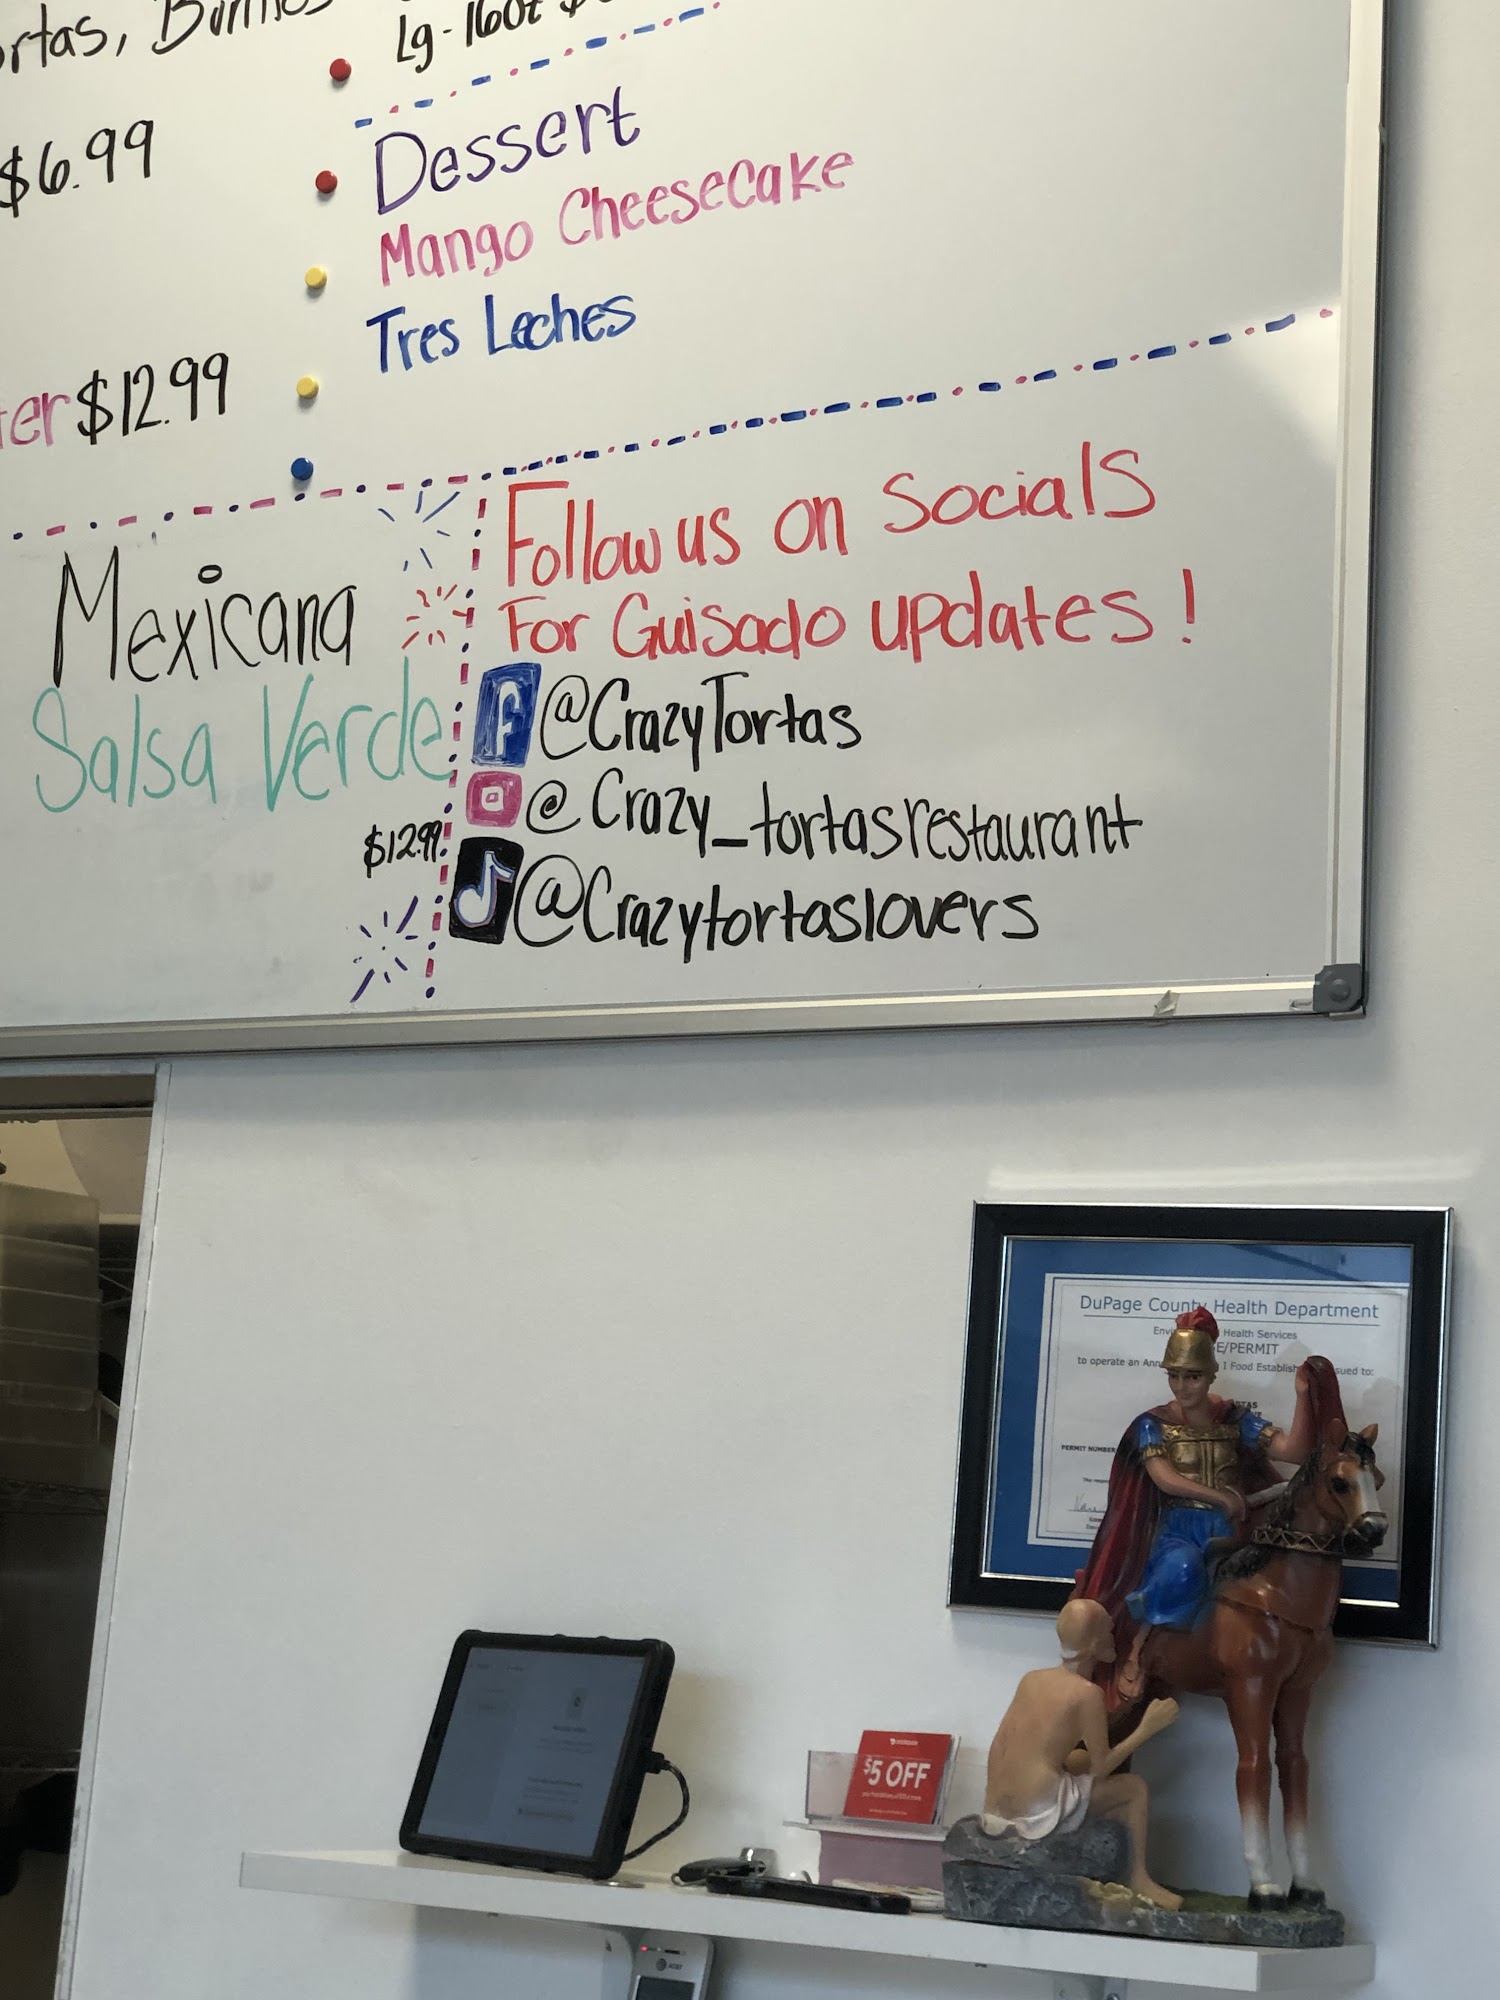 Lg-16oz
$6.99
Dessert
Mango Cheesecake
Tres Leches
$12.99
Mexicana
Salsa Verde
$12.99
Follow us on Socials
For Guisado updates!
f @CrazyTortas
@Crazy_tortasrestaurant
@Crazytortaslovers
DuPage County Health Department
Health Services
/PERMIT
to operate an
I Food
to:
PERMIT NUMBER
$5 OFF
AT&T